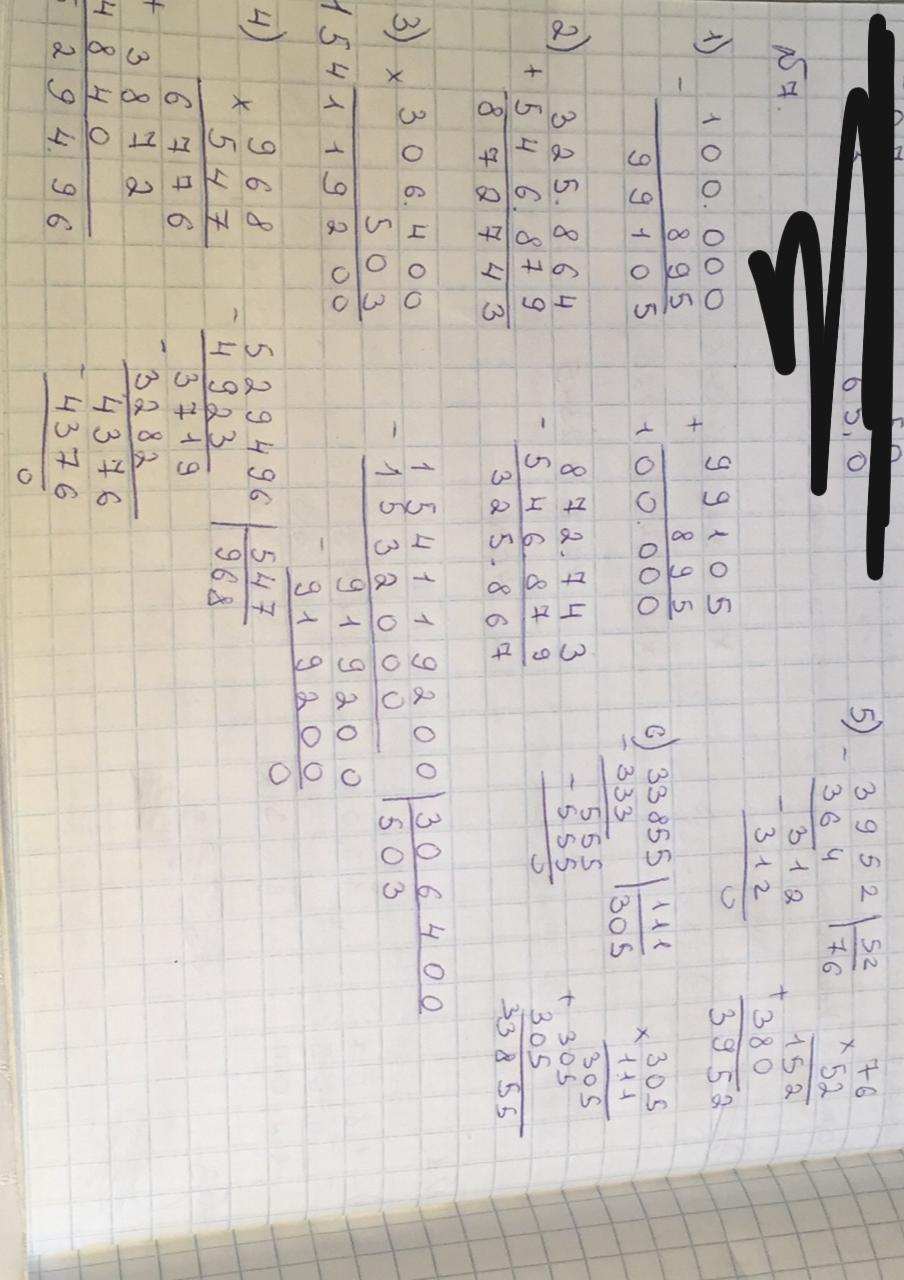 №7.
1) - 100.000
895
99105
+ 99105
895
100.000
2) 325.864
+ 546.879
8727743
- 872.743
546.879
325.867
3) × 306.400
503
154119200
- 154119200 | 306400
1532000 | 503
- 919200
919200
0
4) × 968
547
6776
+ 3872
4840
5294.96
- 529496 | 547
4923 | 968
- 3719
3282
- 4376
4376
0
5) - 3952 | 52
364 | 76
- 312
312
0
× 76
52
152
+ 380
3952
6) - 33855 | 111
333 | 305
- 555
555
0
× 305
111
305
+ 305
305
33855